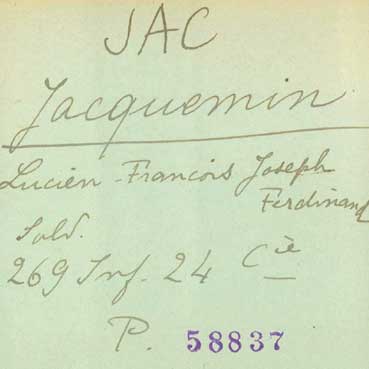 JAC
Jacquemin
Lucien-Francois Joseph
Ferdinand
Sold.
269 Inf. 24 Cie
P. 58837